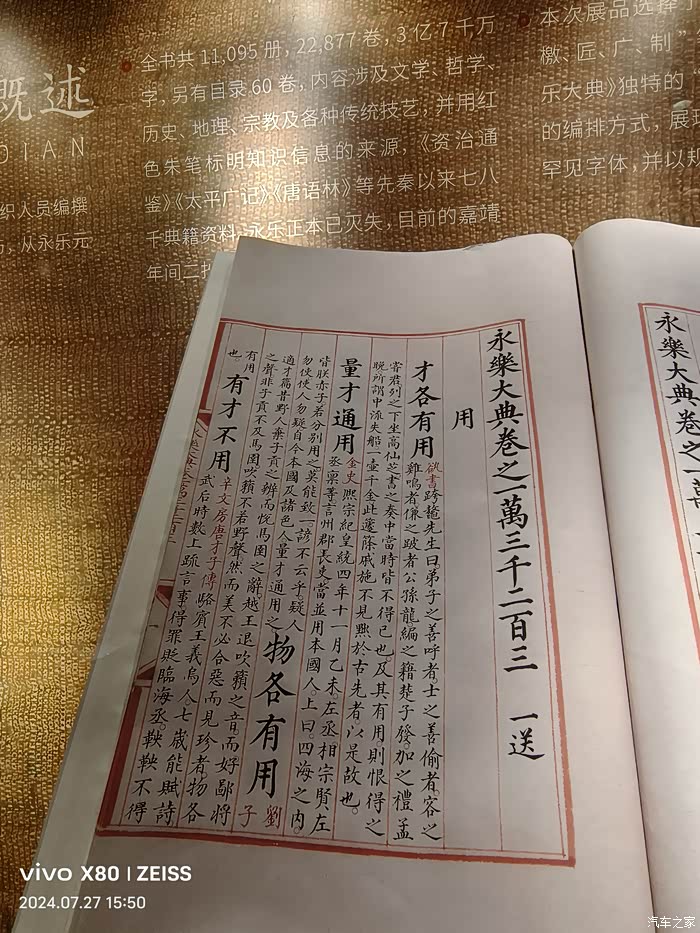 概述
DIAN
织人员编撰
，从永乐元
全书共11,095册，22,877卷，3亿7千万
字，另有目录60卷，内容涉及文学、哲学、
历史、地理、宗教及各种传统技艺，并用红
色朱笔标明知识信息的来源，《资治通
鉴》《太平广记》《唐语林》等先秦以来七八
千典籍资料。永乐正本已灭失，目前的嘉靖
年间二
本次展品选择
檄、匠、广、制”
乐大典》独特的
的编排方式，展现
罕见字体，并以
永樂大典卷之一萬
永樂大典卷之一萬三千二百三 一送
用
才各有用 㰸書跨鼇先生曰弟子之善呼者士之善偷者容之
雞鳴者傳之跛者公孫龍編之籍楚子發加之禮孟
嘗君列之下坐高仙芝書之奏中當時皆不得已也及其有用則恨得之
晚所謂中流失船一壺千金此蘧蒢戚施不見黜於古先者以是故也
量才通用 金史熙宗紀皇統四年十一月乙未左丞相宗賢左
丞禀等言州郡長吏當並用本國人上曰四海之内
皆朕赤子若分别用之莫能致一諺不云乎疑人
勿使使人勿疑自今本國及諸色人量才通用之 物各有用 劉
子
適才篇昔野人棄子貢之辨而悦馬圉之辭越王退吹籟之音而好鄙
之聲非子貢不及馬圉吹籟不若野聲然而美不必合惡而見珍者物各
有用
也 有才不用 辛文房唐才子傳駱賓王義烏人七歲能賦詩
武后時數上疏言事得罪貶臨海丞鞅鞅不得
vivo X80 | ZEISS
2024.07.27 15:50
汽车之家